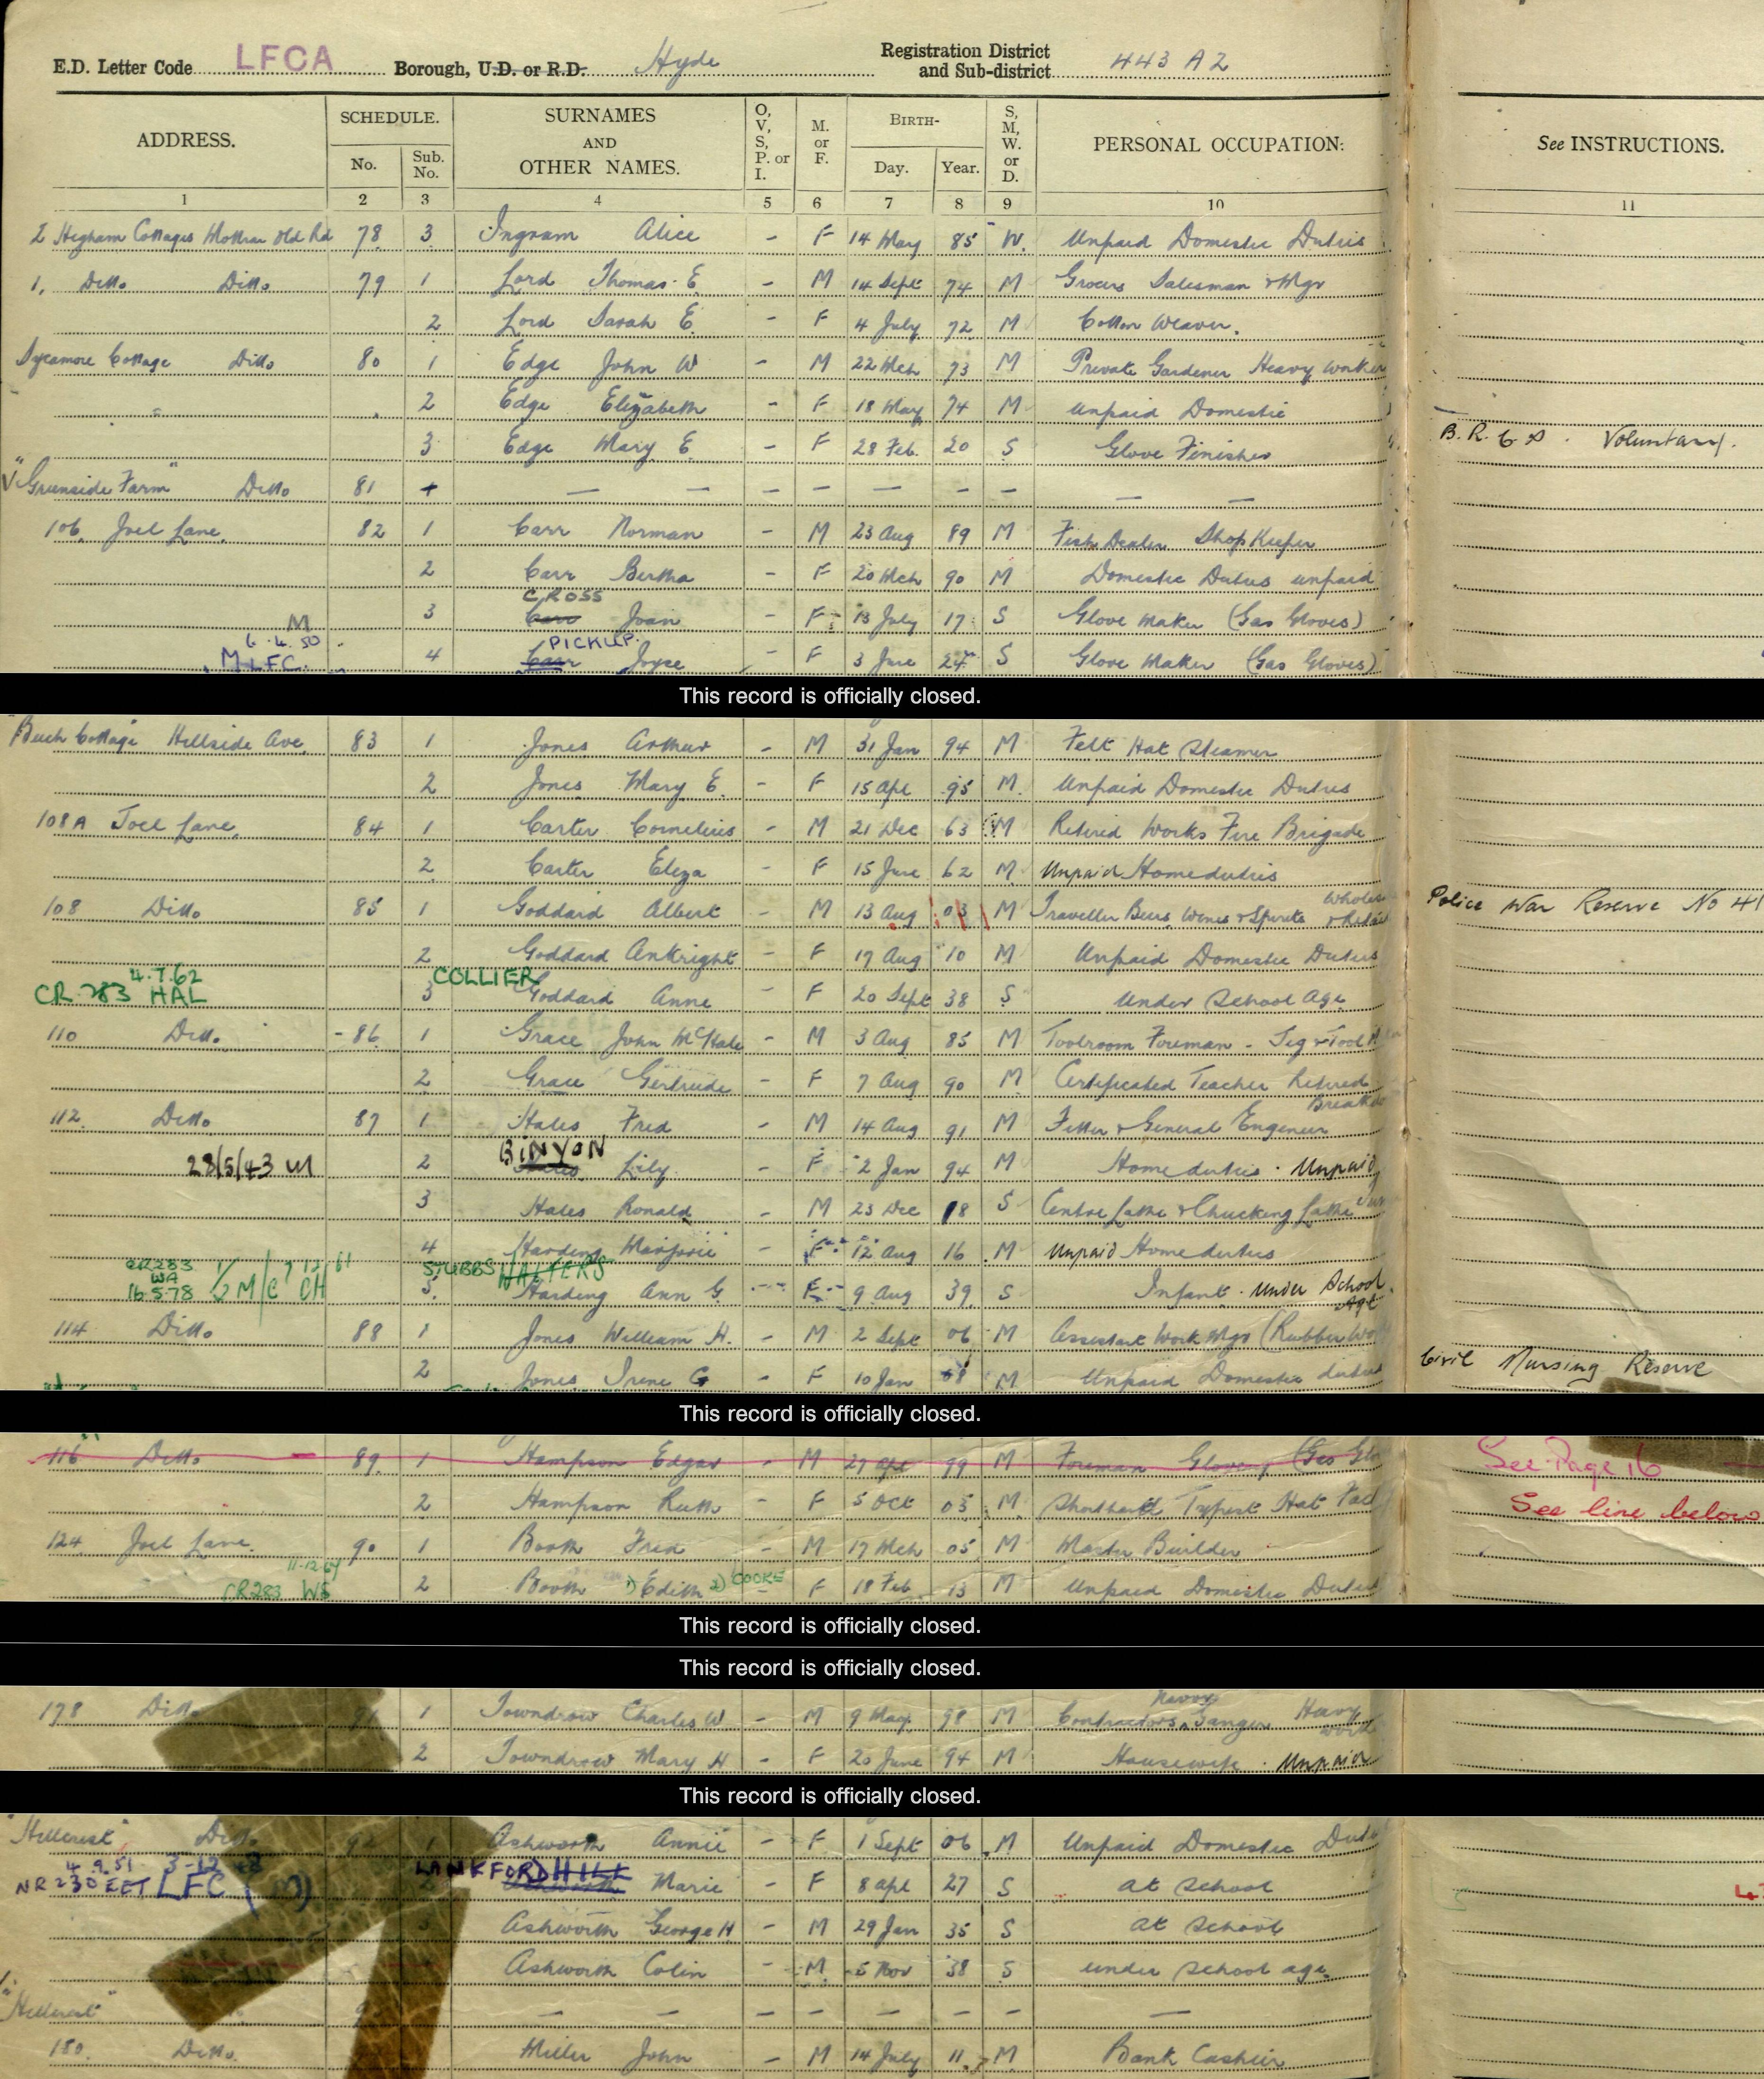 E.D. Letter Code LFCA Borough, U.D. or R.D. Hyde Registration District and Sub-district 443 A2
ADDRESS. SCHEDULE. No. Sub. No. SURNAMES AND OTHER NAMES. O, V, S, P. or I. M. or F. BIRTH- Day. Year. S, M, W. or D. PERSONAL OCCUPATION: See INSTRUCTIONS.
1 2 3 4 5 6 7 8 9 10 11
2 Higham Cottages Mottram Old Rd 78 3 Ingram Alice - F 14 May 85 W. Unpaid Domestic Duties
1, Ditto Ditto 79 1 Lord Thomas E - M 14 Sept 74 M Grocers Salesman & Mgr
2 Lord Sarah E. - F 4 July 72 M Cotton Weaver.
Sycamore Cottage Ditto 80 1 Edge John W - M 22 Mch 73 M Private Gardener Heavy Worker
2 Edge Elizabeth - F 18 May 74 M Unpaid Domestic
3 Edge Mary E - F 28 Feb. 20 S Glove Finisher B.R.C.S. Voluntary.
"Greenside Farm" Ditto 81 + — — — — — — — — — —
106, Joel Lane, 82 1 Carr Norman - M 23 Aug 89 M Fish Dealer Shop Keeper
2 Carr Bertha - F 20 Mch 90 M Domestic Duties unpaid
M 3 Carr CROSS Joan - F 13 July 17 S Glove Maker (Gas Gloves)
6.4.50 M LFC. 4 Carr PICKUP. Joyce - F 3 June 24 S Glove Maker (Gas Gloves)
This record is officially closed.
"Beech Cottage" Hillside Ave 83 1 Jones Arthur - M 31 Jan 94 M Felt Hat Steamer
2 Jones Mary E. - F 15 Apl 95 M. Unpaid Domestic Duties
108A Joel Lane, 84 1 Carter Cornelius - M 21 Dec 63 M Retired Works Fire Brigade
2 Carter Eliza - F 15 June 62 M. Unpaid Homeduties
108 Ditto 85 1 Goddard Albert - M 13 Aug 03 M Traveller Beers, Wines & Spirits Police War Reserve No 41
2 Goddard Ankright - F 17 Aug 10 M Unpaid Domestic Duties
4.7.62 CR 283 HAL 3 COLLIER Goddard Anne - F 20 Sept 38 S Under School Age
110 Ditto - 86 1 Grace John McHale - M 3 Aug 85 M Toolroom Foreman - Jig & Tool
2 Grace Gertrude - F 7 Aug 90 M Certificated Teacher Retired
112 Ditto 87 1 Hales Fred - M 14 Aug 91 M Fitter & General Engineer
28/5/43 2 BINYON Lily - F 2 Jan 94 M Home duties. Unpaid
3 Hales Ronald - M 23 Dec 18 S Centre Lathe & Chucking Lathe
4 Harding Marjorie - F 12 Aug 16 M Unpaid Home duties
CR283 WA 16578 M/C CH 5. STUBBS WALTERS Harding Ann G. F 9 Aug 39 S Infant. Under School Age
114 Ditto 88 1 Jones William H. - M 2 Sept 06 M Assistant Work Mgr (Rubber
2 Jones Irene G - F 10 Jan M Unpaid Domestic duties Civil Nursing Reserve
This record is officially closed.
116 Ditto 89 1 Hampson Edgar - M 27 Apl 99 M Foreman Gloving (Gas Glo See Page 16
2 Hampson Ruth - F 5 Oct 05 M Shorthand Typist Hat See line below
124 Joel Lane. 90 1 Booth Fred - M 17 Mch 05 M Master Builder
11-12-67 CR283 WS 2 Booth 1) Edith 2) COOKE - F 18 Feb 13 M Unpaid Domestic Duties
This record is officially closed.
This record is officially closed.
178 Ditto 91 1 Towndrow Charles W - M 9 May 98 M Contractors Navvy Ganger Heavy Work
2 Towndrow Mary H - F 20 June 94 M Housewife. Unpaid
This record is officially closed.
"Hillcrest" Ditto 92 1 Ashworth Annie - F 1 Sept 06 M Unpaid Domestic Duties
4.9.51 3-12 NR230 EET LFC 2 LANKFORD HILL Marie - F 8 Apl 27 S at School
3 Ashworth George H - M 29 Jan 35 S at School
Ashworth Colin - M 5 Nov 38 S under school age.
"Hillcrest" — — — — — — — —
180. Ditto. Miller John - M 14 July 11 M Bank Cashier